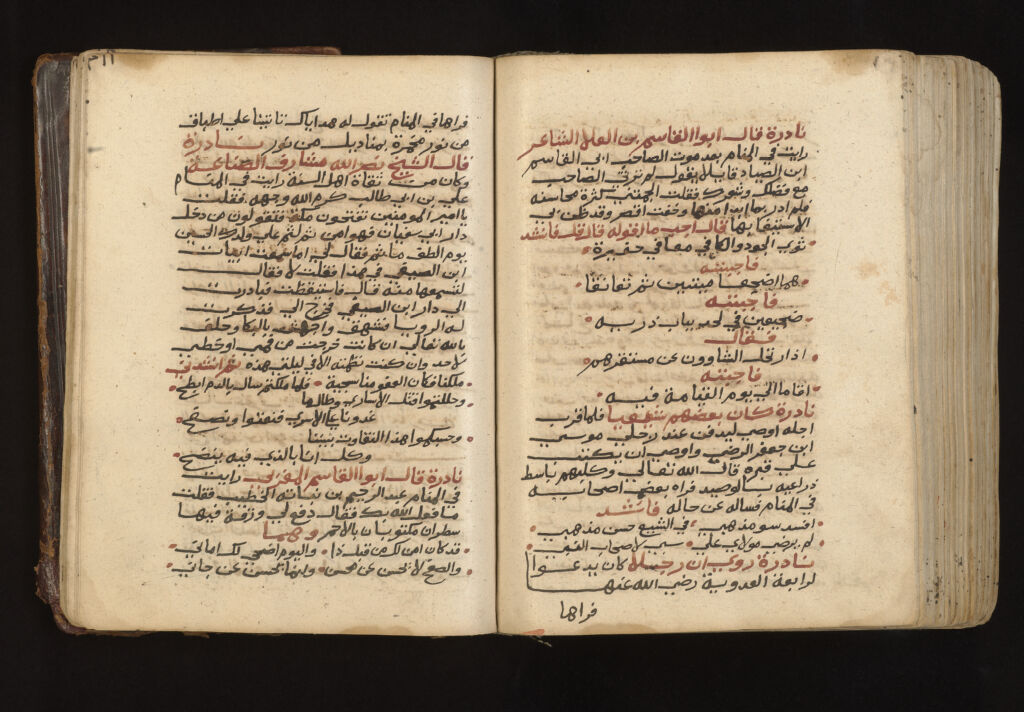 نادرة قال ابوا القاسم بن العلا الشاعر
رايت في المنام بعد موت الصاحب ابي القاسم
ابن الصياد قايلا يقول لم ترثي الصاحب
مع فضلك وشعرك فقلت الجمتني كثرة محاسنه
فلم ادر بما ابدا منها وخفت اقصر وقد ظن بي
الاستيفا بها فقال اجب ما اقوله قال قلت فانشد
ثوي الجود والكافي معا في حفيرة
فاجبته
هما اضجعا ميتين ثم تعانقا
فاجبته
ضجيعين في لحد بباب ذريه
فقال
اذا رتحل الثاوون عن مستقرهم
فاجبته
اقاما الي يوم القيامة فيه
نادرة كان بعضهم يتشيع فلما قرب
اجله اوصي ليدفن عند رجلي موسي
ابن جعفر الرضي واوصي ان يكتب
علي قبره قال الله تعالي وكلبهم باسط
ذراعيه بالوصيد فراه بعض اصحابه
في المنام فساله عن حاله فانشد
افسد سو مذهبي في الشيع حسن مذهبي
لم يرض مولاي علي سب لاصحاب النبي
نادرة روي ان رجلا كان يدعوا
لرابعة العدوية رضي الله عنها
فراها
فراها في المنام تقول له هداياك تاتينا علي اطباق
من نور مخمرة بمناديل من نور نادرة
قال الشيخ نصر الله مشارف الصناعة
وكان من ثقاة اهل السنة رايت في المنام
علي بن ابي طالب كرم الله وجهه فقلت
يا امير المومنين تفتحون مكة فتقولون من دخل
دار ابي سفيان فهو امن ثم تم علي ولدك الحسين
يوم الطف ما تم فقال لي اما سمعت ابيات
ابن الصيفي في هذا فقلت لا فقال
لتسمعها منه قال فاستيقظت فبادرت
الي دار ابن الصيفي فخرج الي فذكرت
له الرويا فشهق واجهش بالبكا وحلف
بالله تعالي ان كانت خرجت من فمي او خطي
لاحد وان كنت نظمته الا في ليلتي هذه ثم انشدني
ملكنا فكان العفو منا سجية فلما ملكتم سال بالدم ابطح
وحللتوا قتل الاساري وطالما
غدونا علي الاسري فنعفوا ونصفح
وحسبكموا هذا التفاوت بيننا
وكل انا بالذي فيه ينضح
نادرة قال ابوا القاسم المغربي رايت
في المنام عبد الرحيم بن نباته الخطيب فقلت
ما فعل الله بك فقال دفع لي ورقة فيها
سطران مكتوبان بالاحمر وهما
قد كان امن لك من قبل ذا واليوم اضحي لك امانان
والصفح لا يحسن عن محسن وانما يحسن عن جاني